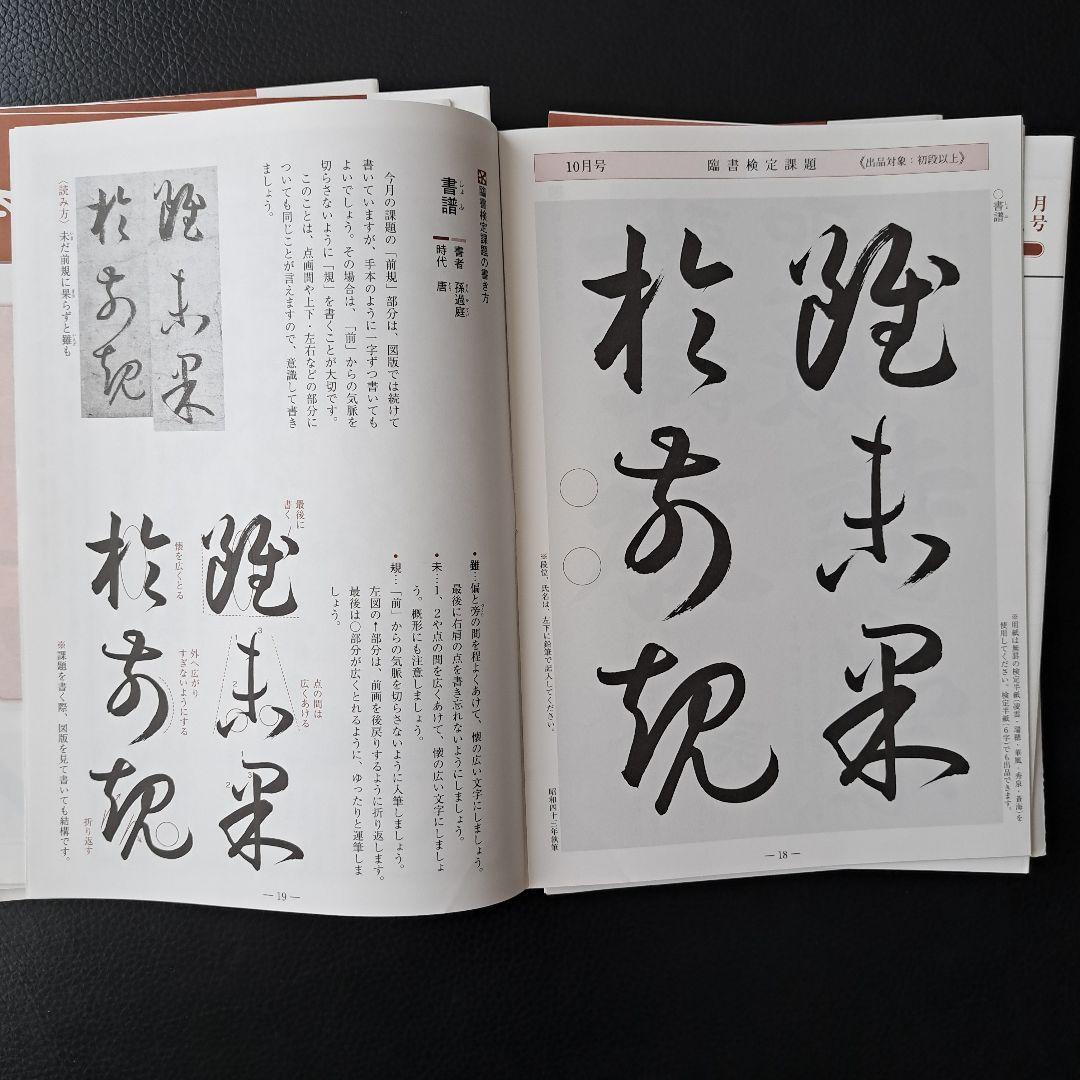 10月号
臨書検定課題
《出品対象：初段以上》
月号
〇書譜
雖未果
於前規
※用紙は無罫の検定半紙(凌雲・瑞穂・華風・秀泉・蒼海)を
使用してください。検定半紙(6字)でも出品できます。
※段位、氏名は、左下に鉛筆で記入してください。
昭和四十三年執筆
― 18 ―
臨書検定課題の書き方
書譜
しょふ
書者 孫過庭
時代 唐
今月の課題の「前規」部分は、図版では続けて
書いていますが、手本のように一字ずつ書いても
よいでしょう。その場合は、「前」からの気脈を
切らさないように「規」を書くことが大切です。
このことは、点画間や上下・左右などの部分に
ついても同じことが言えますので、意識して書き
ましょう。
雖未果
於前規
〈読み方〉未だ前規に果らずと雖も
・雖…偏と旁の間を程よくあけて、懐の広い文字にしましょう。
最後に右肩の点を書き忘れないようにしましょう。
・未…1、2や点の間を広くあけて、懐の広い文字にしましょ
う。概形にも注意しましょう。
・規…「前」からの気脈を切らさないように入筆しましょう。
左図の↑部分は、前画を後戻りするように折り返します。
最後は〇部分が広くとれるように、ゆったりと運筆しま
しょう。
最後に
書く
雖未果
点の間は
広くあける
1
2
3
於前規
懐を広くとる
外へ広がり
すぎないようにする
折り返す
※課題を書く際、図版を見て書いても結構です。
― 19 ―